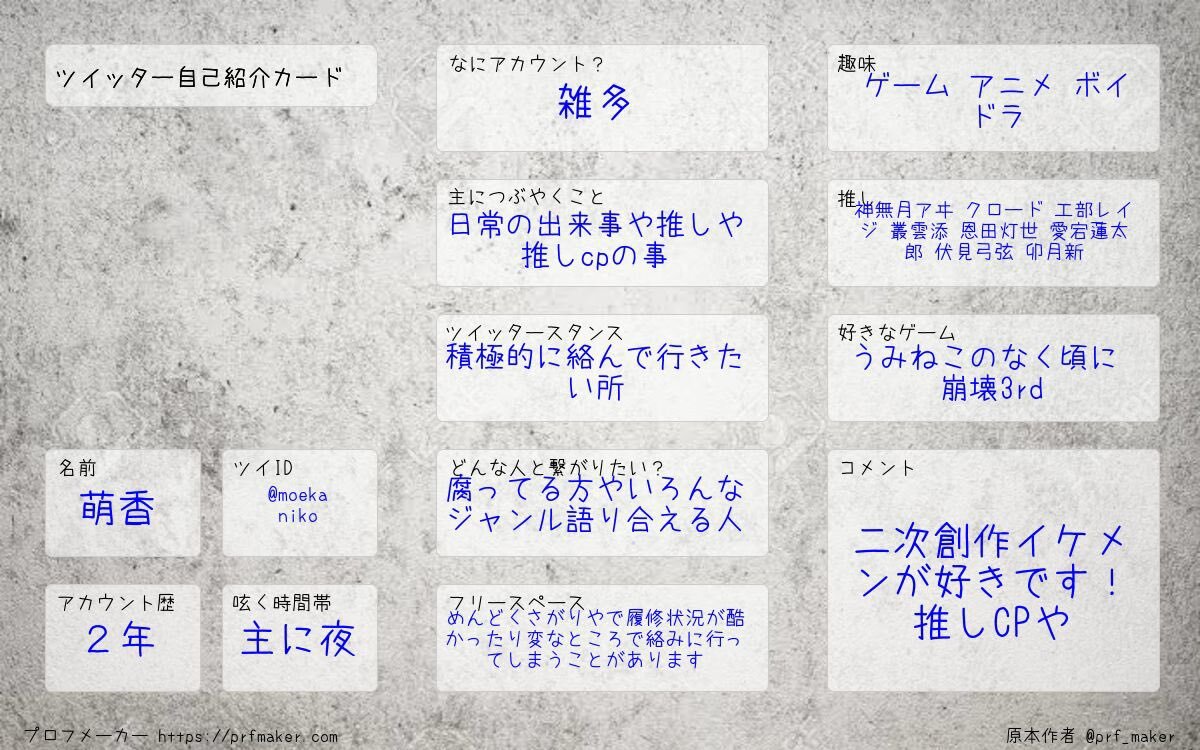 ツイッター自己紹介カード
名前
萌香
ツイID
@moeka
niko
アカウント歴
２年
呟く時間帯
主に夜
なにアカウント？
雑多
主につぶやくこと
日常の出来事や推しや
推しcpの事
ツイッタースタンス
積極的に絡んで行きた
い所
どんな人と繋がりたい？
腐ってる方やいろんな
ジャンル語り合える人
フリースペース
めんどくさがりやで履修状況が酷
かったり変なところで絡みに行っ
てしまうことがあります
趣味
ゲーム アニメ ボイ
ドラ
推し
神無月アヰ クロード 工部レイ
ジ 叢雲添 恩田灯世 愛宕蓮太
郎 伏見弓弦 卯月新
好きなゲーム
うみねこのなく頃に
崩壊3rd
コメント
二次創作イケメ
ンが好きです！
推しCPや
プロフメーカー https://prfmaker.com
原本作者 @prf_maker